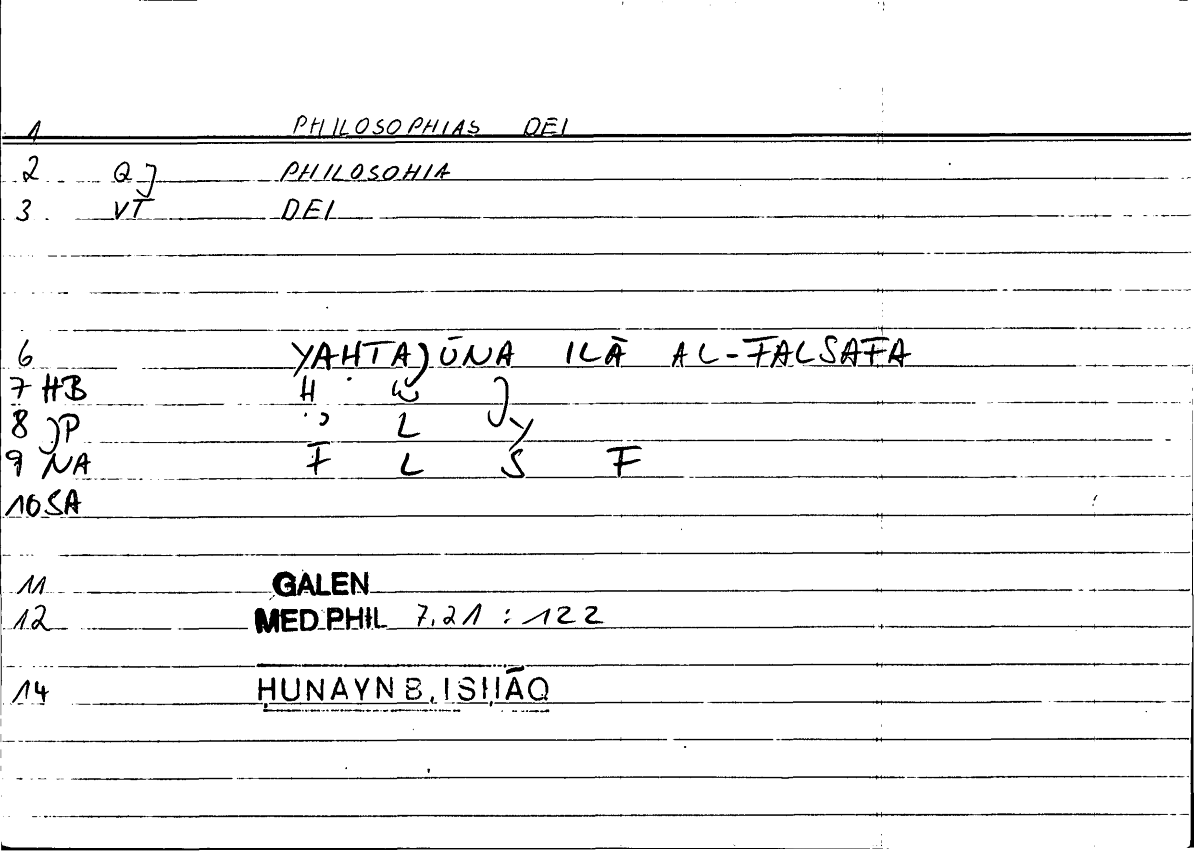 1 PHILOSOPHIAS DEI
2 QJ PHILOSOHIA
3 VT DEI
6 YAḤTAJŪNA ILĀ AL-FALSAFA
7 HB Ḥ W J
8 JP ' L Y
9 NA F L S F
10 SA
11 GALEN
12 MED PHIL 7,21 : 122
14 ḤUNAYN B. ISḤĀQ